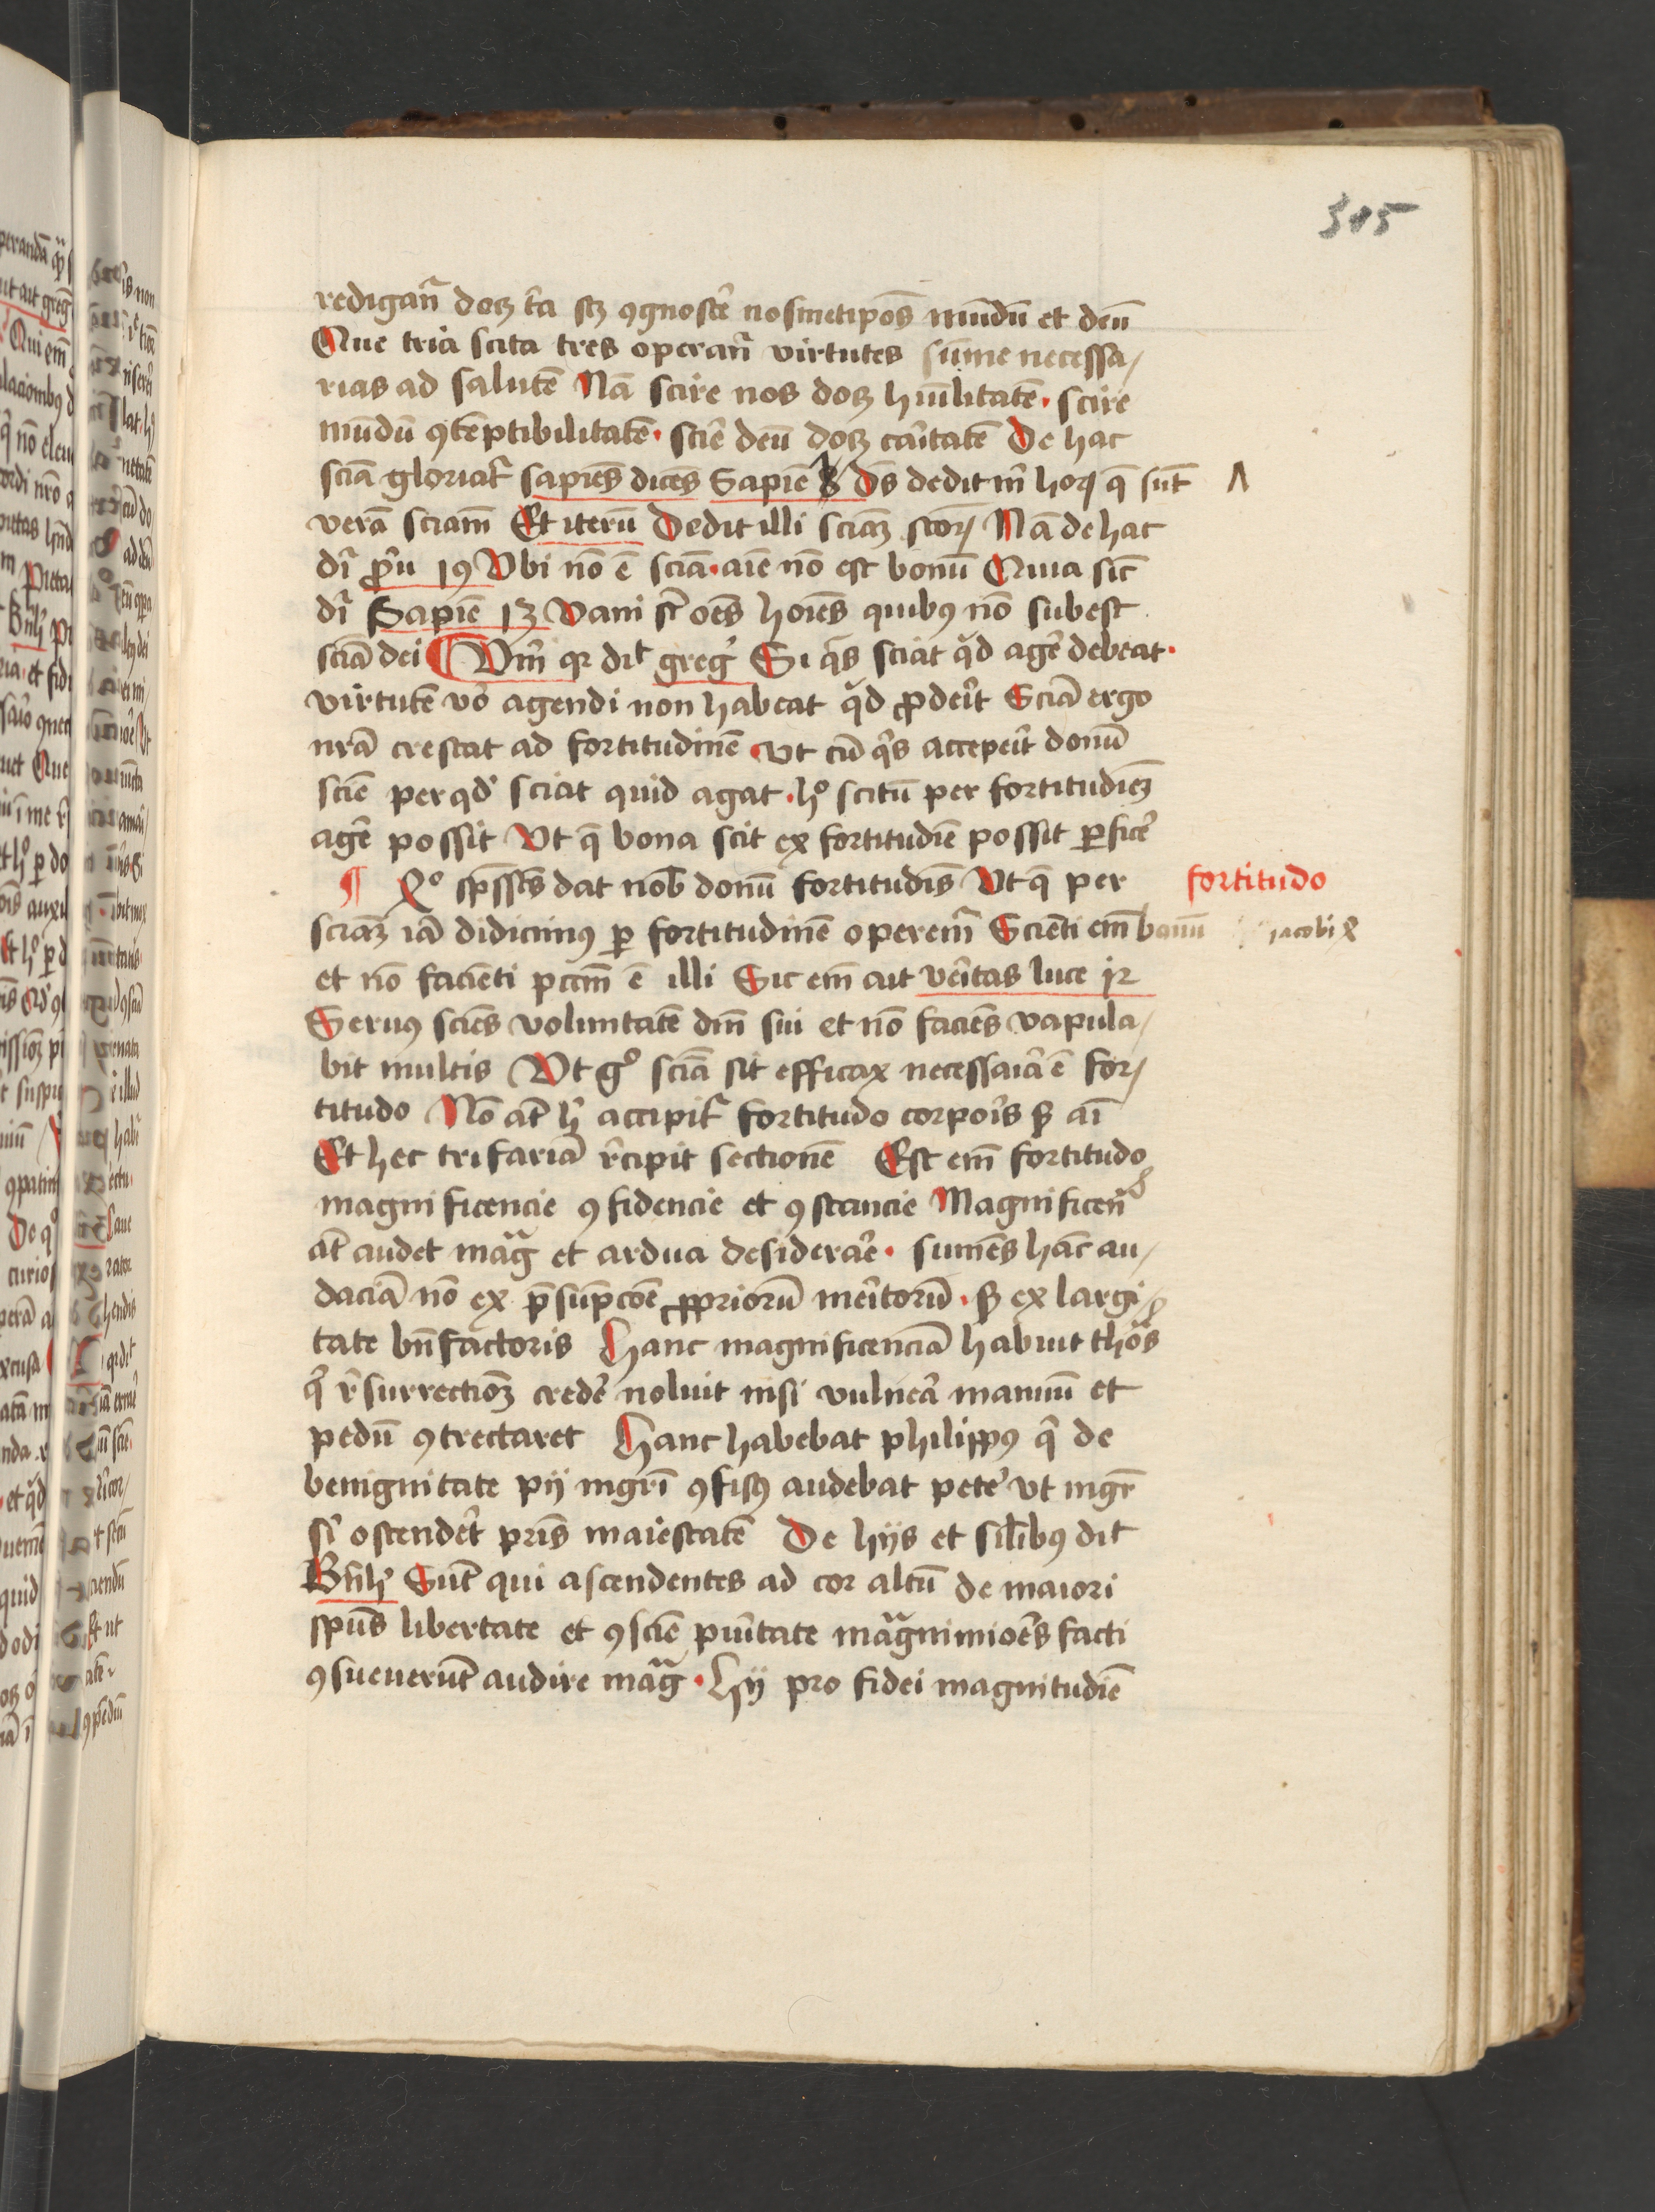 305
redigant̃ doꝫ t̃a scꝫ ꝯgnoscẽ nosmetip̃os mũdũ et deũ
Que tria scita tres operant̃ virtutes sũme necessa/
rias ad salutẽ Nã scire nos doꝫ hũilitatẽ · scire
mũdũ ꝯtẽptibilitatẽ · sciẽ deũ doꝫ caĩtatẽ De hac
sciã gloriat̃ sapiẽs dicẽs Sapiẽ 8 Ds̃ dedit m̃ hoꝝ q̃ sũt
verã sciam̃ Et iterũ Dedit illi sciãꝫ scoꝝ Nã de hac
dr̃ p̃u 19 Vbi nõ ẽ sciã · aĩe nõ est bonũ Quia sic̃
dr̃ Sapiẽ 13 Vani st̃ oẽs hoĩes quibꝰ nõ subest
sciã dei ¶ Vm̃ qꝛ dit̃ greg̃ Si q̃s sciat q̃d agẽ debeat ·
virtutẽ võ agendi non habeat q̃d ꝓdeĩt Sciã ergo
nrã crescat ad fortitudinẽ Vt cũ q̃s accepeĩt donũ
sciẽ per qd̃ sciat quid agat · hͦ scitũ per fortitudiẽꝫ
agẽ possit Vt q̃ bona scit ex fortitudiẽ possit ꝑficẽ
¶ Xͦ sp̃ssc̃s dat nob̃ donũ fortitudĩs Vt q̃ per
fortitudo
sciãꝫ iã didicimꝰ ꝑ fortitudinẽ operem̃ Sciẽti em̃ bonũ
iacobi
et nõ faciẽti pccm̃ ẽ illi Sic em̃ ait veĩtas luce 12
Seruꝰ sciẽs voluntatẽ dm̃ sui et nõ faciẽs vapula/
bit multis Vt gͦ sciã sit efficax necessaĩa ẽ for/
titudo Nõ at̃ h̃ accipit̃ fortitudo corpoĩs ꝫ aĩ
Et hec trifariã r̃cipit sectionẽ Est em̃ fortitudo
magnificencie ꝯfidencie et ꝯstancie Magnificeñ
at̃ audet mag̃ et ardua desiderãe · sumẽs hãc au/
daciã nõ ex p̃sũpcõe ꝓpriorũ meĩtorũ · ꝫ ex largi/
tate bñfactoris Hanc magnificenciã habuit thõs
q̃ r̃surrectiõꝫ credẽ noluit nisi vulneã manuũ et
pedũ ꝯtrectaret Hanc habebat philippꝰ q̃ de
benignitate pij mgr̃i ꝯfisꝰ audebat petẽ vt mgr̃
s̃i ostendẽt pr̃is maiestatẽ De hijs et sil̃ibꝰ dit̃
Bñh̃ Sũt qui ascendentes ad cor altũ de maiori
sp̃us libertate et ꝯsciẽ puĩtate magnimioẽs facti
ꝯsueuerũt audire mag̃ · Hij pro fidei magnitudiẽ